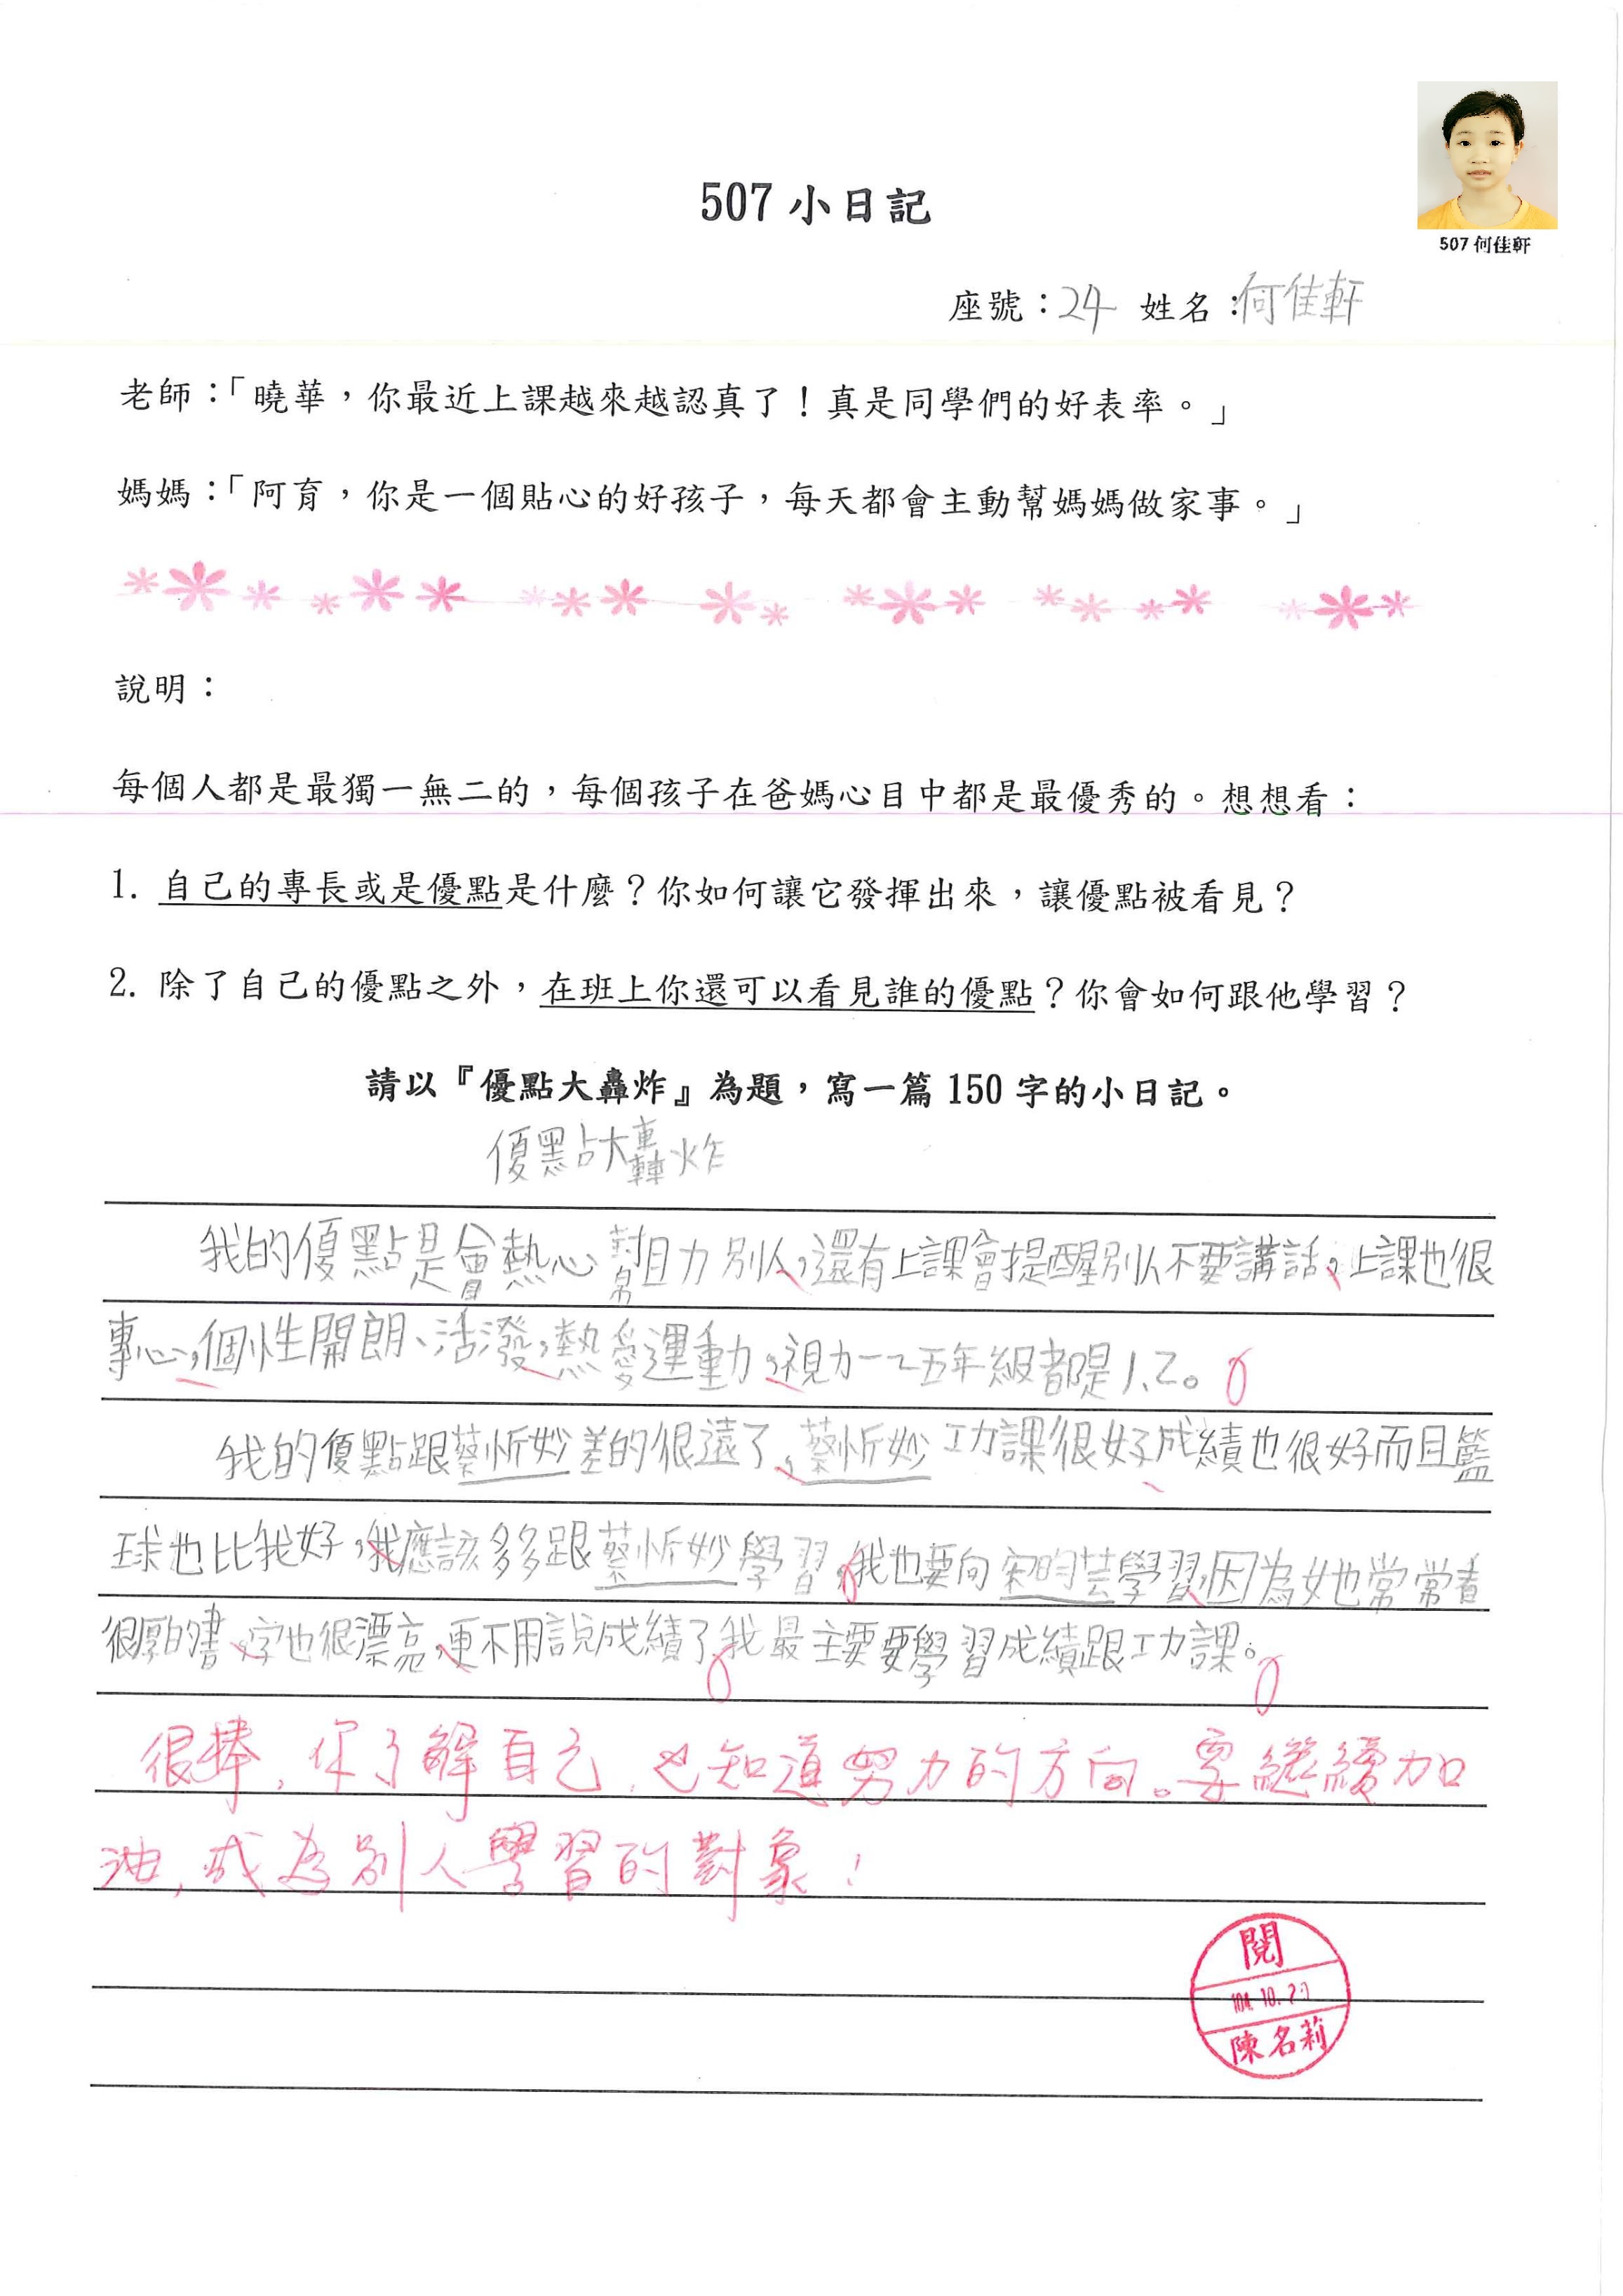 507 小日記
507 何佳軒
座號：24 姓名：何佳軒
老師：「曉華，你最近上課越來越認真了！真是同學們的好表率。」
媽媽：「阿育，你是一個貼心的好孩子，每天都會主動幫媽媽做家事。」
說明：
每個人都是最獨一無二的，每個孩子在爸媽心目中都是最優秀的。想想看：
1. 自己的專長或是優點是什麼？你如何讓它發揮出來，讓優點被看見？
2. 除了自己的優點之外，在班上你還可以看見誰的優點？你會如何跟他學習？
請以『優點大轟炸』為題，寫一篇 150 字的小日記。
優點大轟炸
我的優點是會熱心幫助別人，還有上課會提醒別人不要講話，上課也很
專心，個性開朗、活潑，熱愛運動，視力一～五年級都是1.2。
我的優點跟蔡忻妙差的很遠了，蔡忻妙功課很好、成績也很好而且籃
球也比我好，我應該多多跟蔡忻妙學習。我也要向宋昀芸學習，因為她也常常看
很厚的書，字也很漂亮，更不用說成績了。我最主要要學習成績跟功課。
很棒，你了解自己，也知道努力的方向。要繼續加
油，成為別人學習的對象！
閱
104.10.27
陳名莉